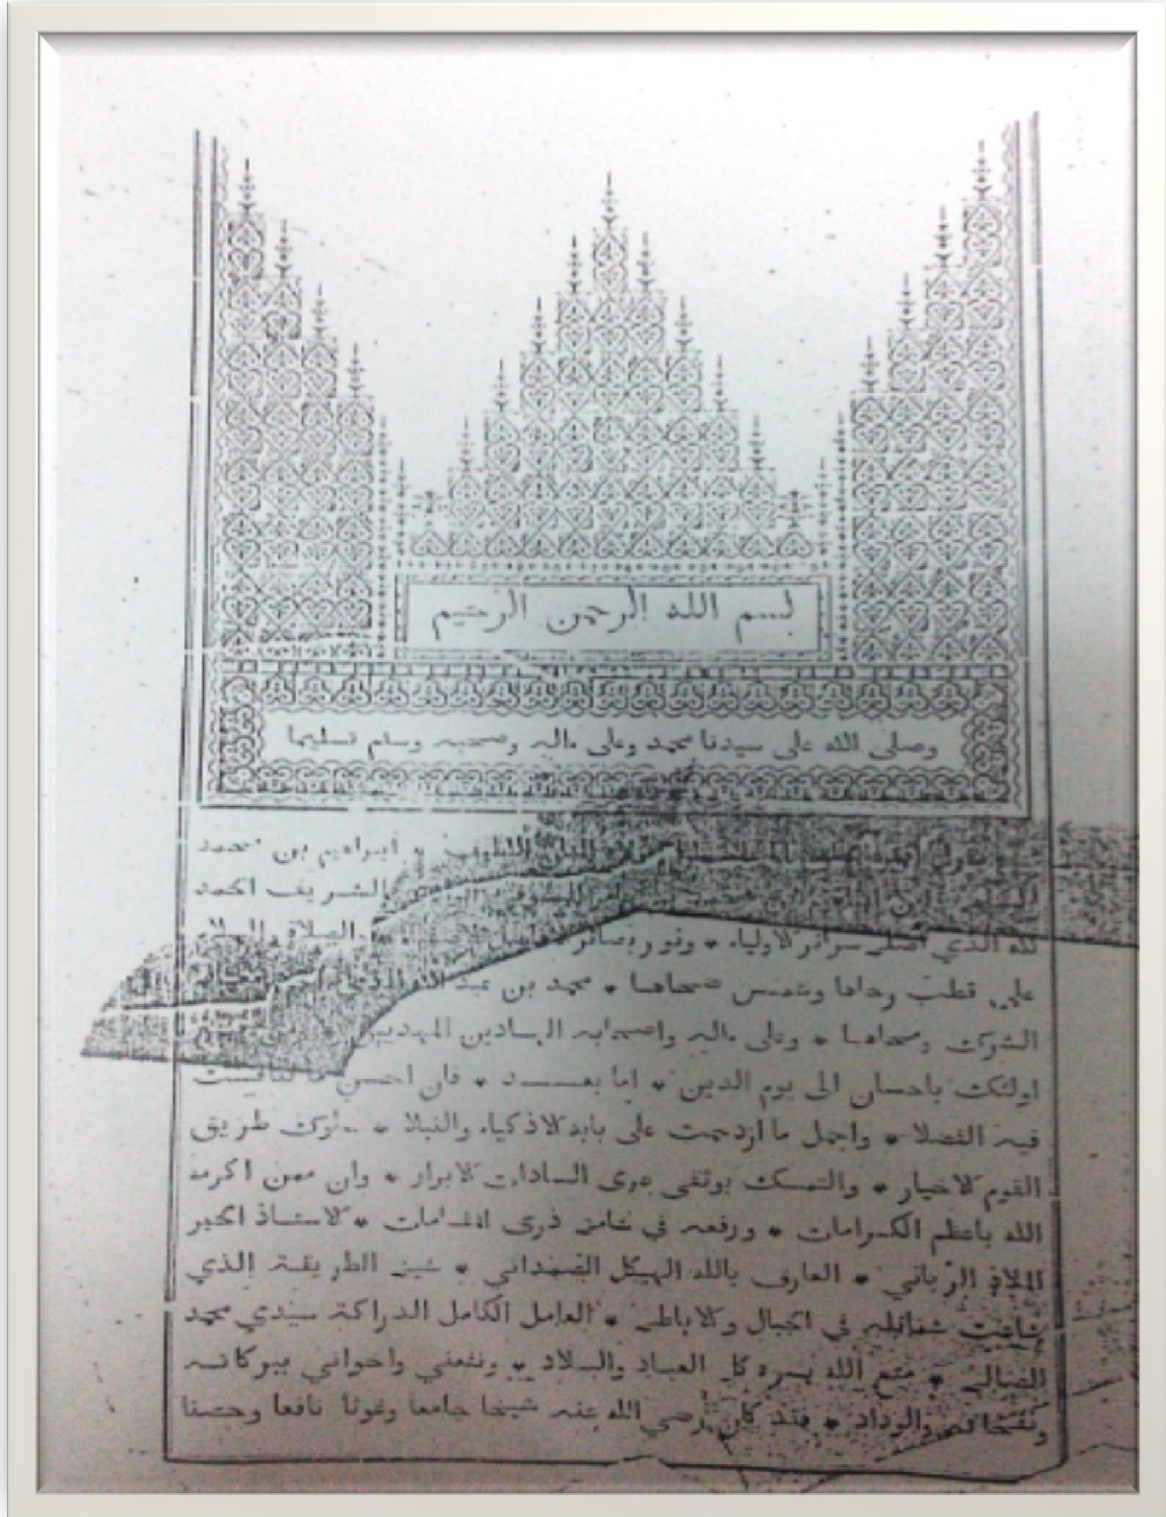 بسم الله الرحمن الرحيم
وصلى الله على سيدنا محمد وعلى ءاله وصحبه وسلم تسليما
ابراهيم بن محمد
الشريف الحمد
لله الذي سرائر الاولياء * ونور بصائر الصلاة والسلام
على قطب رحاها وشمس ضحاها * محمد بن عبد الله
الشرك ومحاها * وعلى ءاله واصحابه السادين المهديين
اولئك باحسان الى يوم الدين * اما بعد * فان احسن ما تنافست
فيه الفضلا * واجمل ما ازدحمت على بابه الاذكياء والنبلا * سلوك طريق
القوم الاخيار * والتمسك بوثقى عرى السادات الابرار * وان ممن اكرمه
الله باعظم الكرامات * ورفعه في ذرى المقامات * الاستاذ الحبر
الملاذ الرباني * العارف بالله الهيكل الصمداني * شيخ الطريقة الذي
شاعت في الجبال والاباطح * العامل الكامل الدراكة سيدي محمد
متع الله بسره كل العباد والبلاد * ونفعني واخواني ببركاته
والوداد * فقد كان رضي الله عنه شيخا جامعا وغوثا نافعا وحصنا